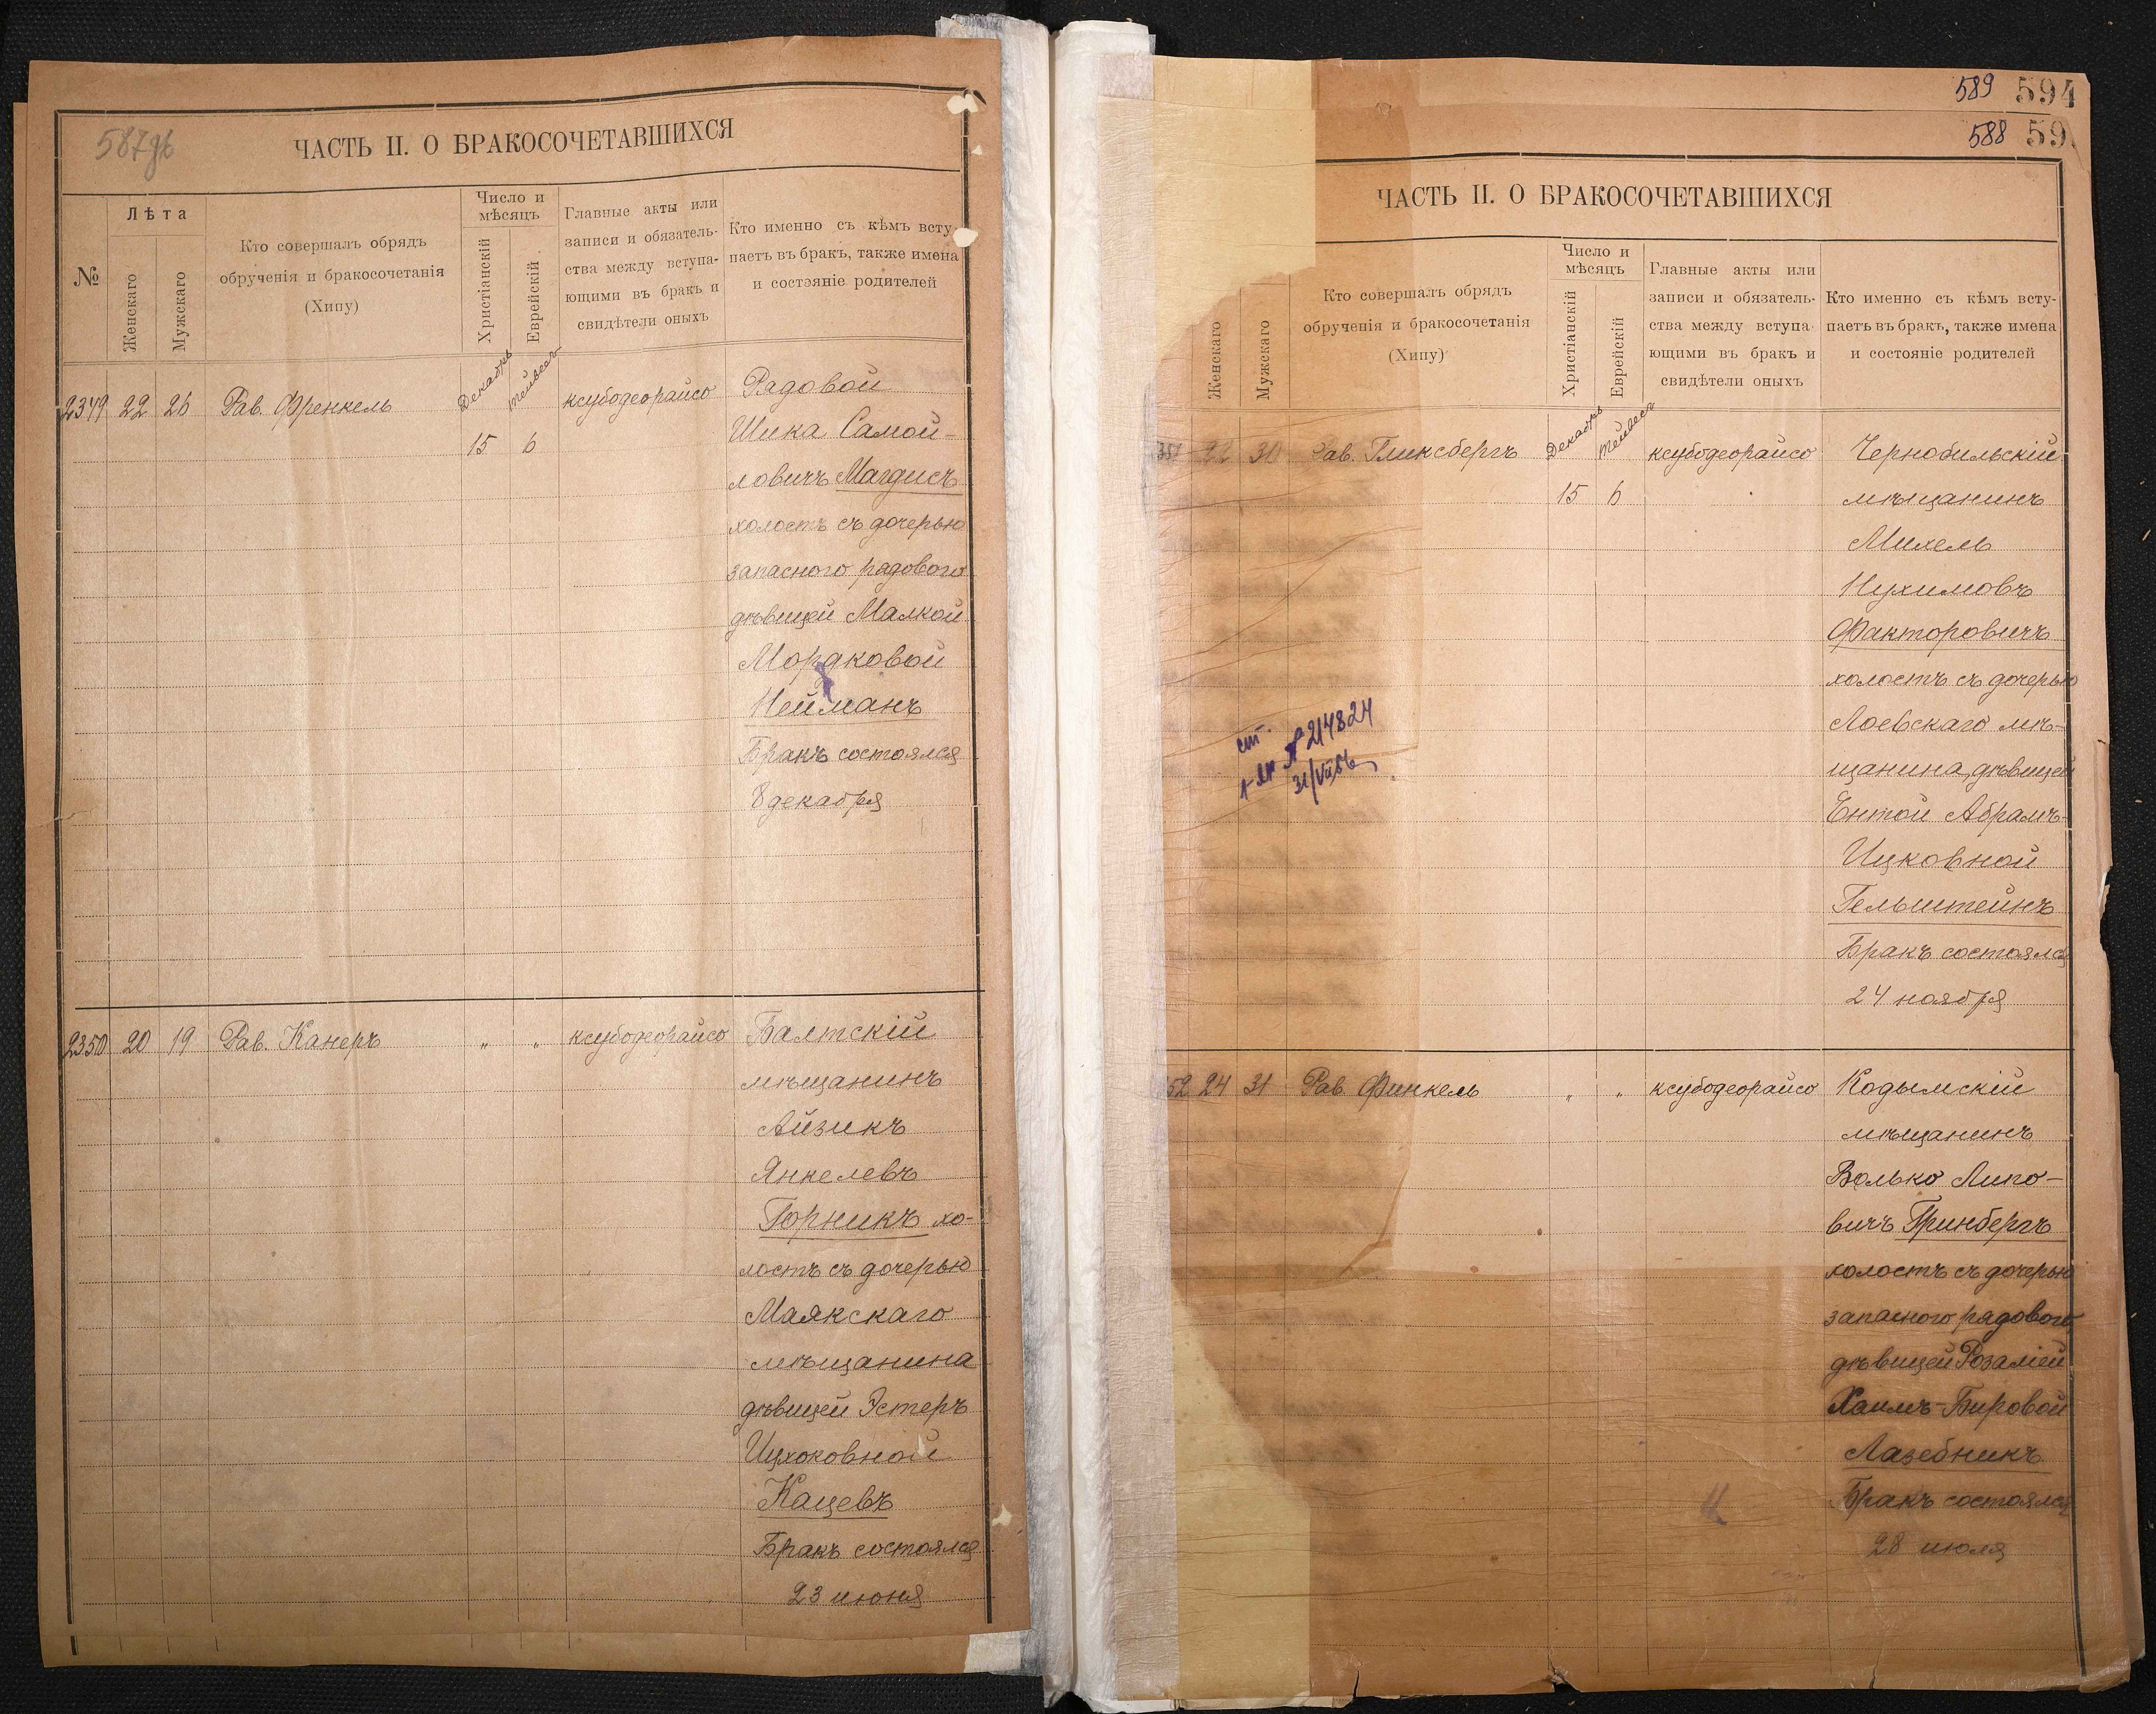 587 об
ЧАСТЬ II. О БРАКОСОЧЕТАВШИХСЯ
№
Лѣта
Женскаго
Мужскаго
Кто совершалъ обрядъ
обрученія и бракосочетанія
(Хипу)
Число и
мѣсяцъ
Христіанскій
Еврейскій
Главные акты или
записи и обязатель-
ства между вступа-
ющими въ бракъ и
свидѣтели оныхъ
Кто именно съ кѣмъ всту-
паетъ въ бракъ, также имена
и состояніе родителей
2349 22 26 Рав. Френкель
Декабрь
Тейвесъ
15 6
ксубодеорайсо
Рядовой
Шика Самой-
ловичъ Магдисъ
холостъ съ дочерью
запасного рядового
дѣвицей Малкой
Мордковой
Нейманъ
Бракъ состоялся
8 декабря
2350 20 19 Рав. Канеръ " " ксубодеорайсо
Балтскій
мѣщанинъ
Айзикъ
Янкелевъ
Горникъ хо-
лостъ съ дочерью
Маякскаго
мѣщанина
дѣвицей Эстеръ
Ицхоковной
Кацевъ
Бракъ состоялся
23 июня
589 594
588 59
ЧАСТЬ II. О БРАКОСОЧЕТАВШИХСЯ
Женскаго
Мужскаго
Кто совершалъ обрядъ
обрученія и бракосочетанія
(Хипу)
Число и
мѣсяцъ
Христіанскій
Еврейскій
Главные акты или
записи и обязатель-
ства между вступа-
ющими въ бракъ и
свидѣтели оныхъ
Кто именно съ кѣмъ всту-
паетъ въ бракъ, также имена
и состояніе родителей
351 22 30 Рав. Гликсбергъ
Декабрь
Тейвесъ
15 6
ксубодеорайсо
Чернобильскій
мѣщанинъ
Михель
Нухимовъ
Факторовичъ
холостъ съ дочерью
Лоевскаго мѣ-
щанина, дѣвицей
Ентой Абрамъ-
Ицковной
Гельштейнъ
Бракъ состоялся
24 ноября
№ 214824
31/VII
52 24 31 Рав. Финкель " " ксубодеорайсо
Кодымскій
мѣщанинъ
Волько Липо-
вичъ Гринбергъ
холостъ съ дочерью
запасного рядового
дѣвицей Розаліей
Хаимъ-Бировой
Лазебникъ
Бракъ состоялся
28 июля